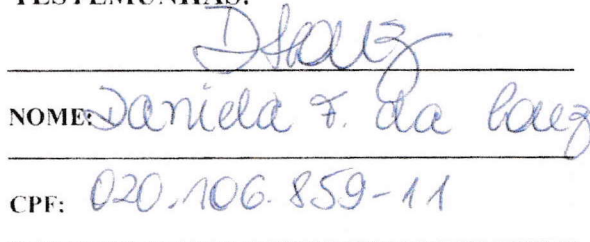 TESTEMUNHAS:
NOME: Daniela F. da Cruz
CPF: 020.106.859-11